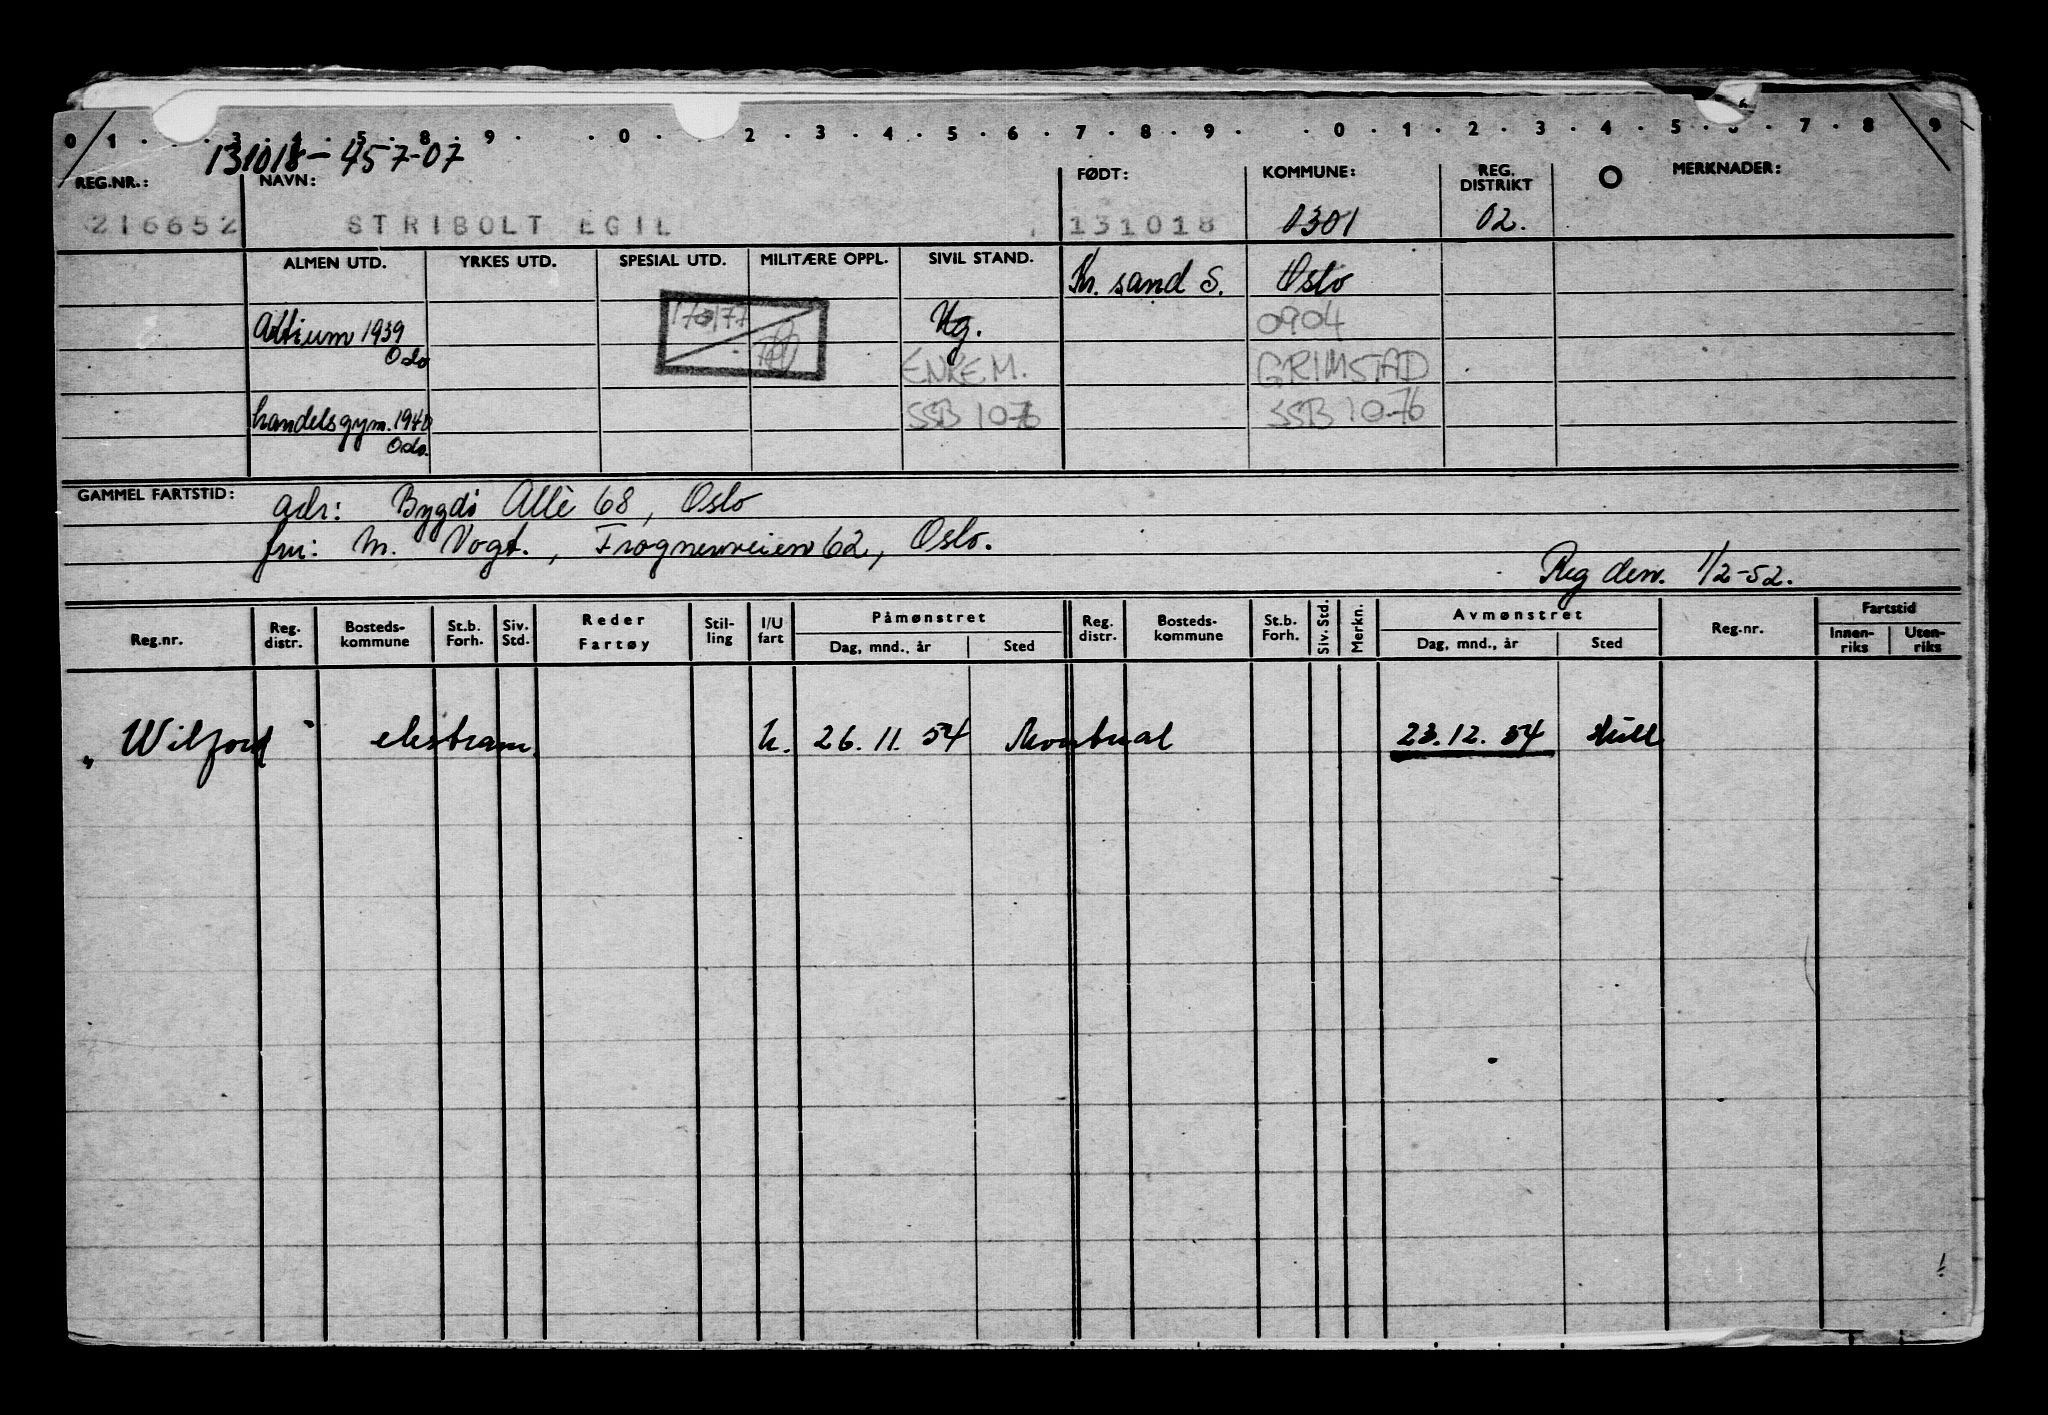 0 1 . . 3 . 4 . 5 . 8 . 9 . . 0 . 2 . 3 . 4 . 5 . 6 . 7 . 8 . 9 . . 0 . 1 . 2 . 3 . 4 . 5 . 6 . 7 . 8 . 9
131018-457-07
REG.NR.: NAVN: FØDT: KOMMUNE: REG. DISTRIKT MERKNADER:
216652 STRIBOLT EGIL 131018 0301 02.
ALMEN UTD. YRKES UTD. SPESIAL UTD. MILITÆRE OPPL. SIVIL STAND. Kr. sand S. Oslo
Artium 1939 Ug. 0904
Oslo ENKEM. GRIMSTAD
handelsgym. 1940 SSB 10-76 SSB 10-76
Oslo.
GAMMEL FARTSTID: adr: Bygdö Allè 68, Oslo
fru: M. Vogt., Frognerveien 62, Oslo.
Reg den. 1/2-52.
Reg.nr. Reg. distr. Bosteds-kommune St.b. Forh. Siv. Std. Reder Fartøy Stil-ling I/U fart Påmønstret Dag, mnd., år Sted Reg. distr. Bosteds-kommune St.b. Forh. Siv. Std. Merkn. Avmønstret Dag, mnd., år Sted Reg.nr. Fartstid Innen-riks Uten-riks
"Wilford" ekstram. U. 26.11.54 Montreal 23.12.54 Hull